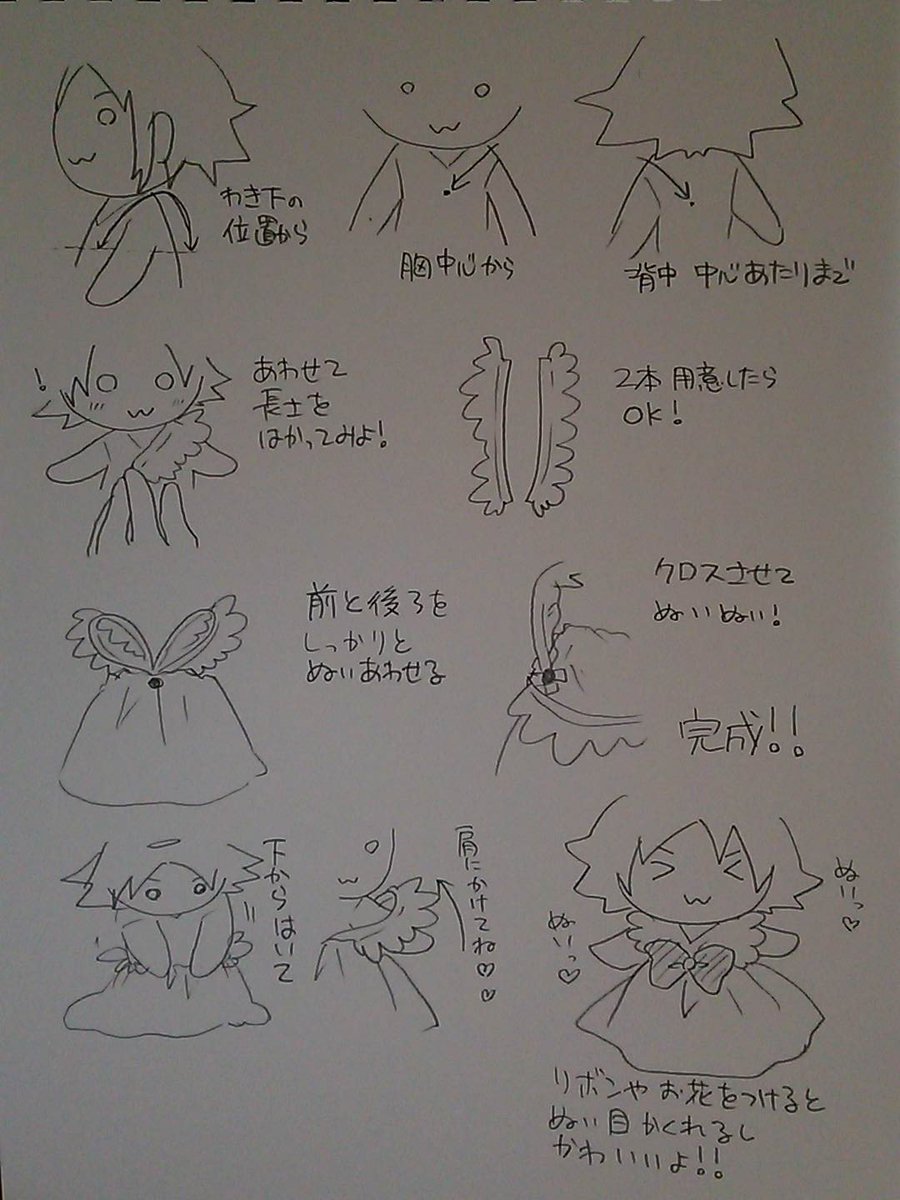 わき下の
位置から
胸中心から
背中 中心あたりまで
!
あわせて
長さを
はかってみよ!
2本用意したら
OK!
前と後ろを
しっかりと
ぬいあわせる
クロスさせて
ぬいぬい!
完成!!
下からはいて
肩にかけてね♡♡
ぬいっ♡
ぬいっ♡
リボンや お花をつけると
ぬい目かくれるし
かわいいよ!!